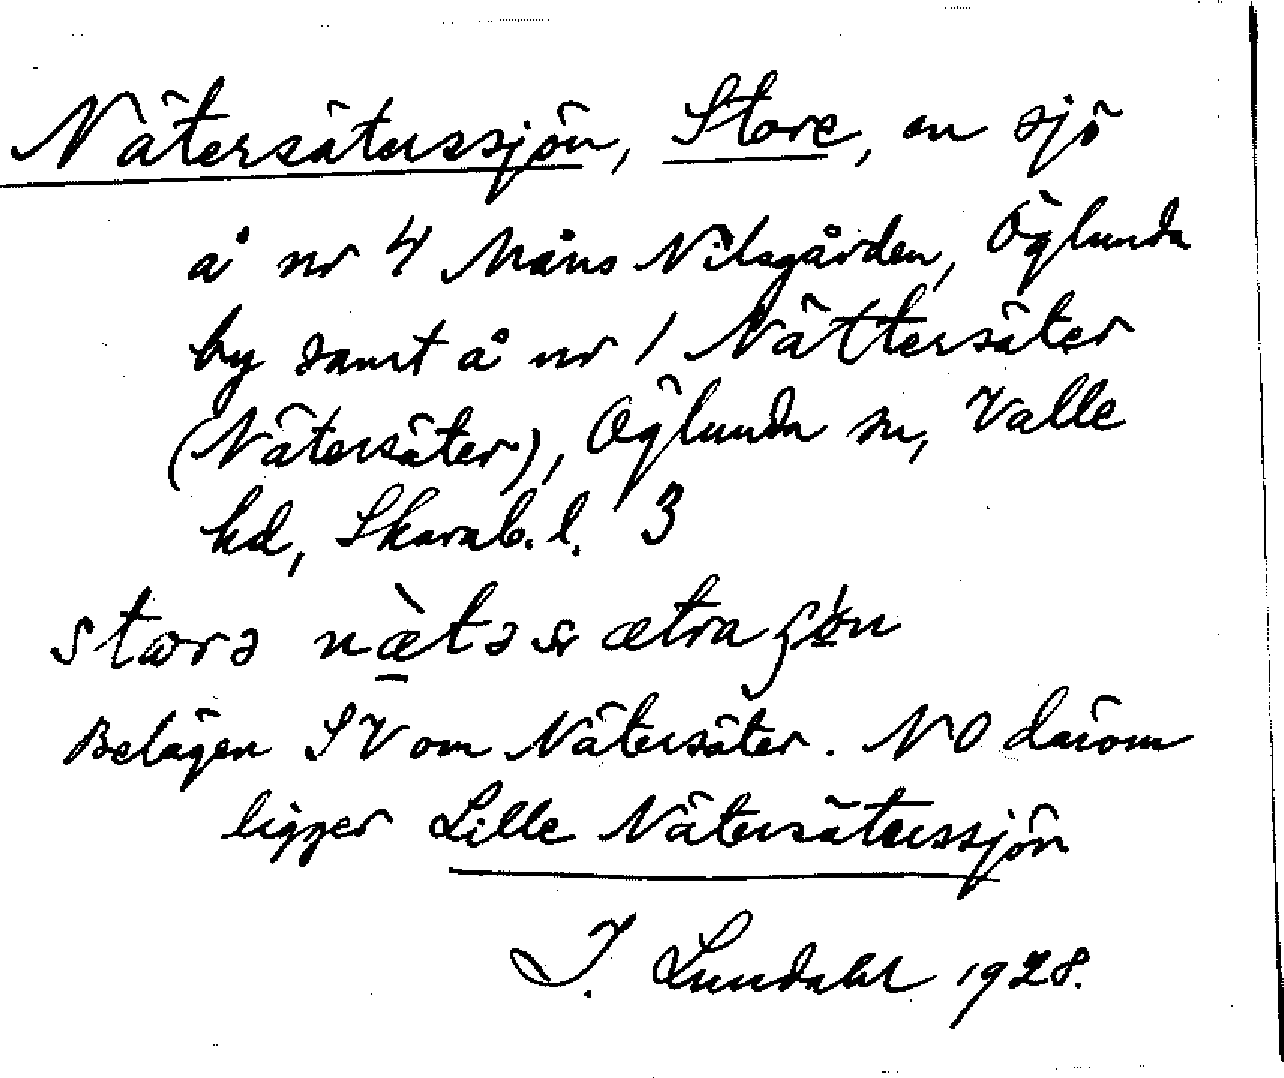 Nätersäterssjön, Store, en sjö
å nr 4 Måns Nilsgården, Öglunda
by samt å nr 1 Nättersäter
(Nätersäter), Öglunda sn, Valle
hd, Skarab. l. 3
Belägen SV om Nätersäter. NO därom
ligger Lille Nätersäterssjön
I. Lundahl 1928.